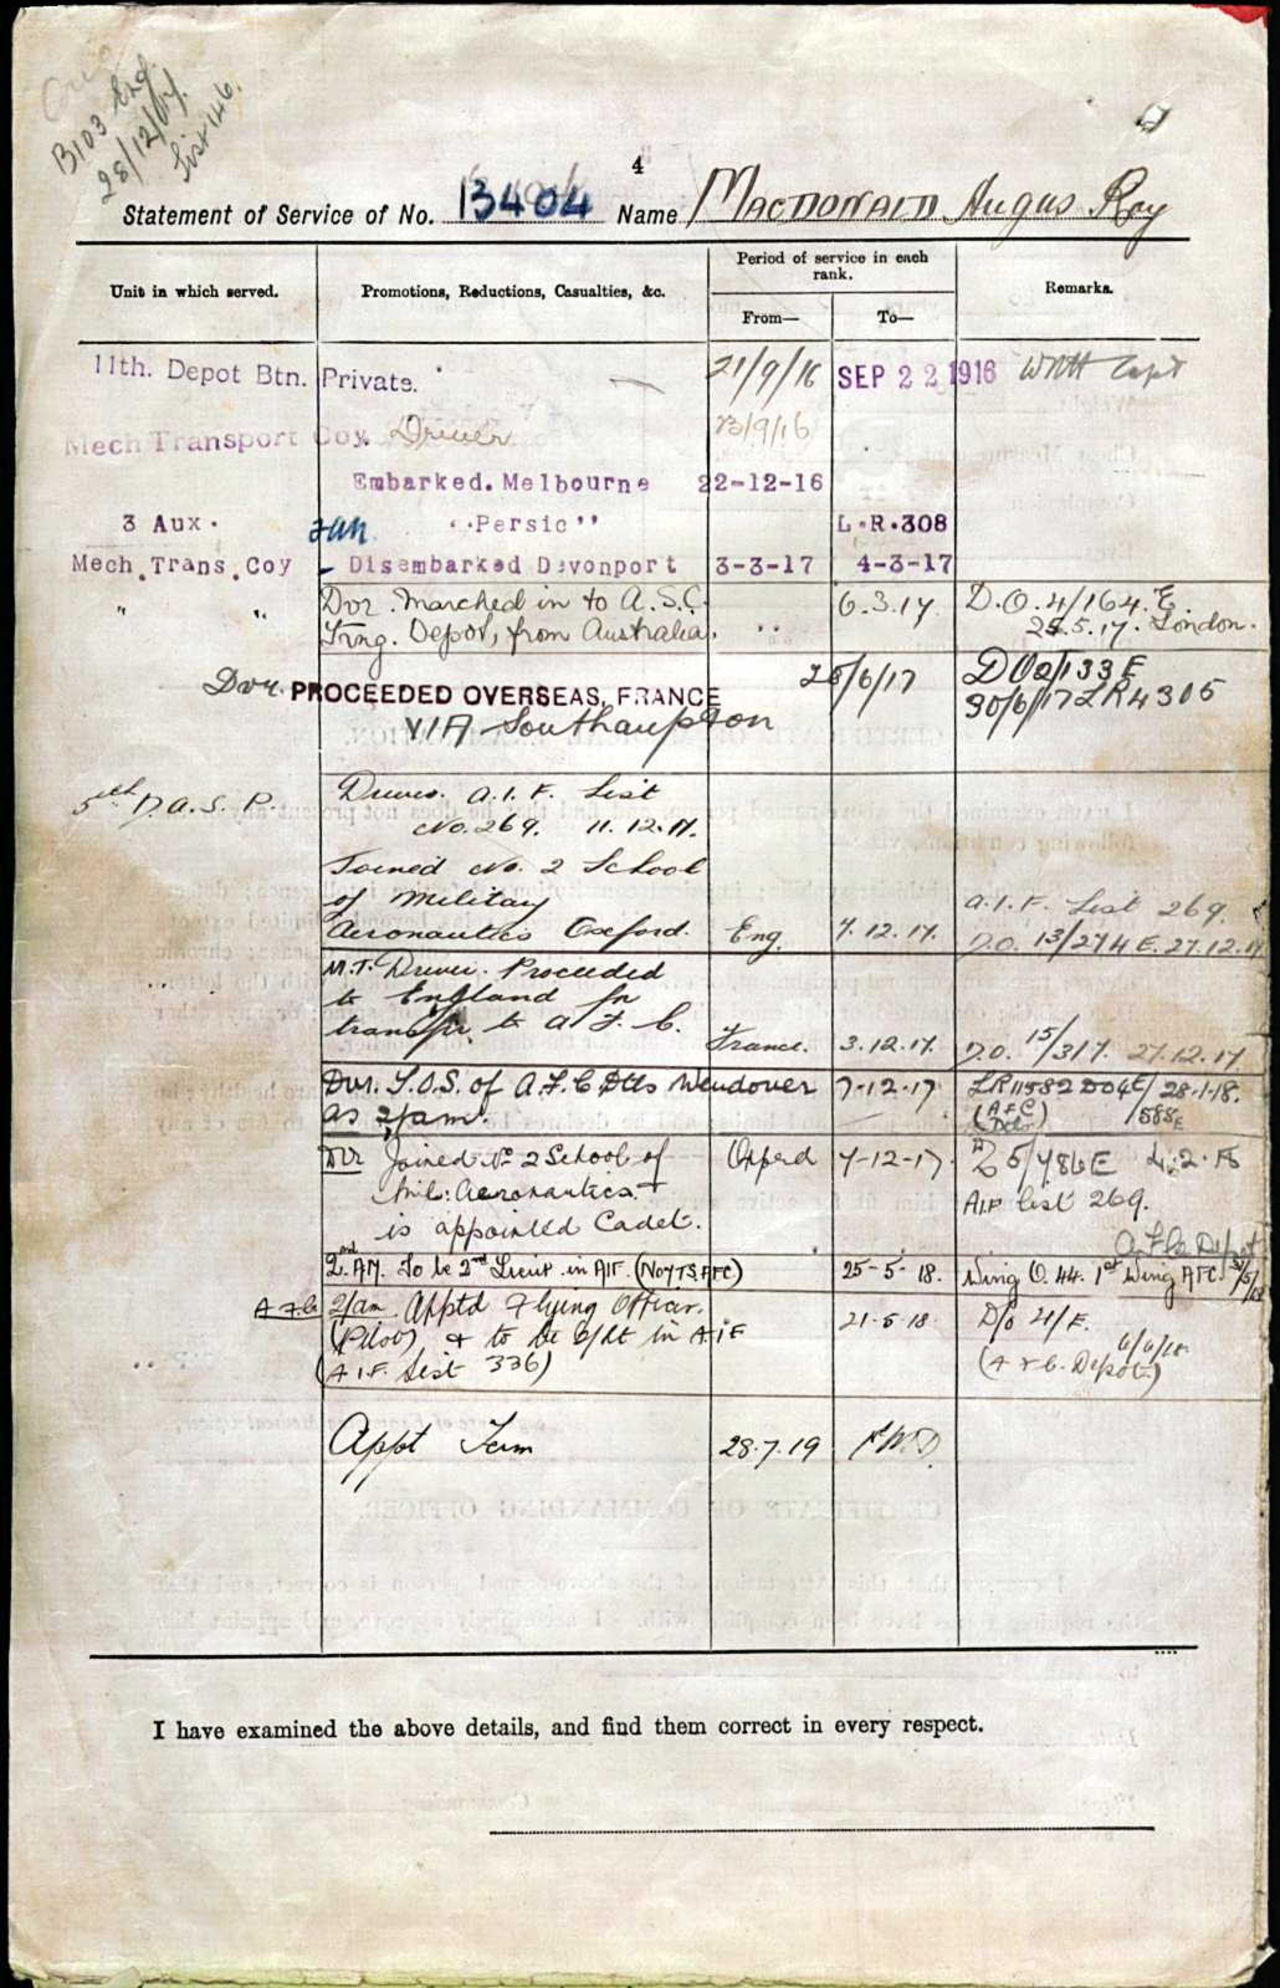 B103 Eng.
28/12/17.
List 146.
4
Statement of Service of No. 13404 Name MacDonald Angus Roy
Unit in which served.
Promotions, Reductions, Casualties, &c.
Period of service in each rank.
From—
To—
Remarks.
11th. Depot Btn. Private. 21/9/16 SEP 22 1916 Capt
Mech Transport Coy. Driver 23/9/16
Embarked. Melbourne 22-12-16
3 Aux. "Persic" L.R.308
Mech.Trans.Coy - Disembarked Devonport 3-3-17 4-3-17
" " Dvr. Marched in to A.S.C. 6.3.17. D.O. 4/164.E.
Trng. Depot, from Australia. " 25.5.17. London.
Dvr. PROCEEDED OVERSEAS, FRANCE 25/6/17 DO2/133E
VIA Southampton 30/6/17 LR4305
5th D.A.S.P. Driver. A.I.F. List
No. 269. 11.12.17.
Joined No. 2 School
of Military A.I.F. List 269.
Aeronautics Oxford. Eng. 7.12.17. D.O. 13/274 E. 27.12.17
M.T. Driver. Proceeded
to England for
transfer to A.F.C. France. 3.12.17. D.O. 15/317. 27.12.17
Dvr. T.O.S. of A.F.C Dtls Wendover 7-12-17 LR11582 DO4E/ 28.1.18.
as 2/am. (AFC Dets) /588E
Dvr Joined No 2 School of Oxford 7-12-17 5/786E 4.2.18
Mil: Aeronautics + AIF list 269.
is appointed Cadet.
A.F.C. Depot
2nd AM. To be 2nd Lieut in AIF. (No 7 T.S. AFC) 25-5-18. Wing O. 44. 1st Wing AFC
A.F.C. 2/am. Apptd Flying Officer. 21-5-18 D/o 4/E.
(Pilot) & to be 2/Lt in AIF 6/6/18
(A.I.F. List 336) (A.F.C. Depot)
Appt Term 28.7.19
I have examined the above details, and find them correct in every respect.